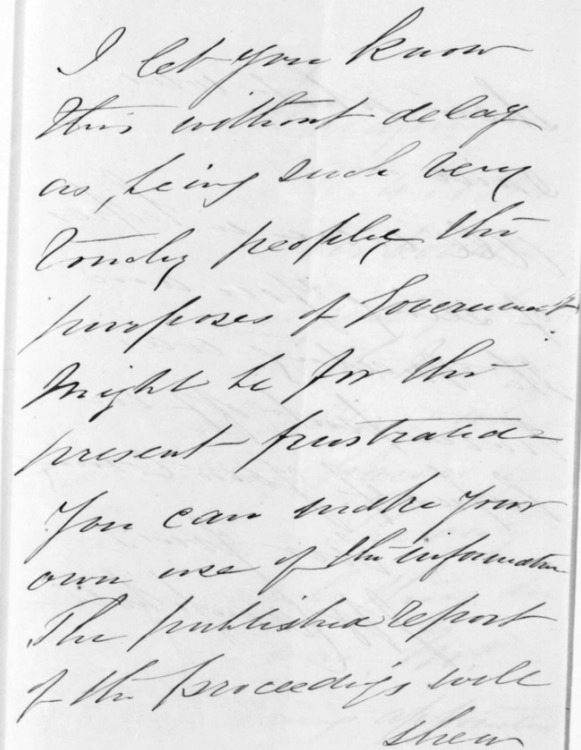 I let you know
this without delay
as, being such very
touchy people, the
purposes of Government
might be for the
present frustrated –
You can make your
own use of the information
The published report
of the proceedings will
shew